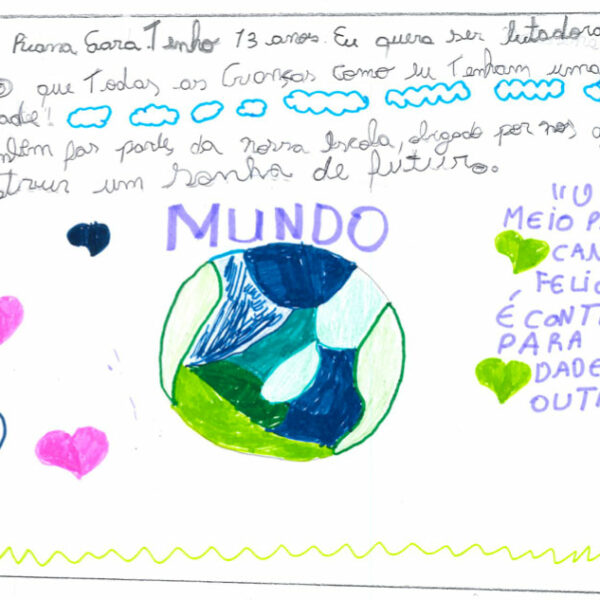 Ruana Sara. Tenho 13 anos. Eu quero ser lutadora
que Todas as Crianças Como eu Tenham uma
dade!
bém faz parte da nossa Escola, obrigado por nos
struir um sonho de futuro.
MUNDO
"U
MEIO PA
CAN
FELIC
É CONTR
PARA
DADE
OUTR